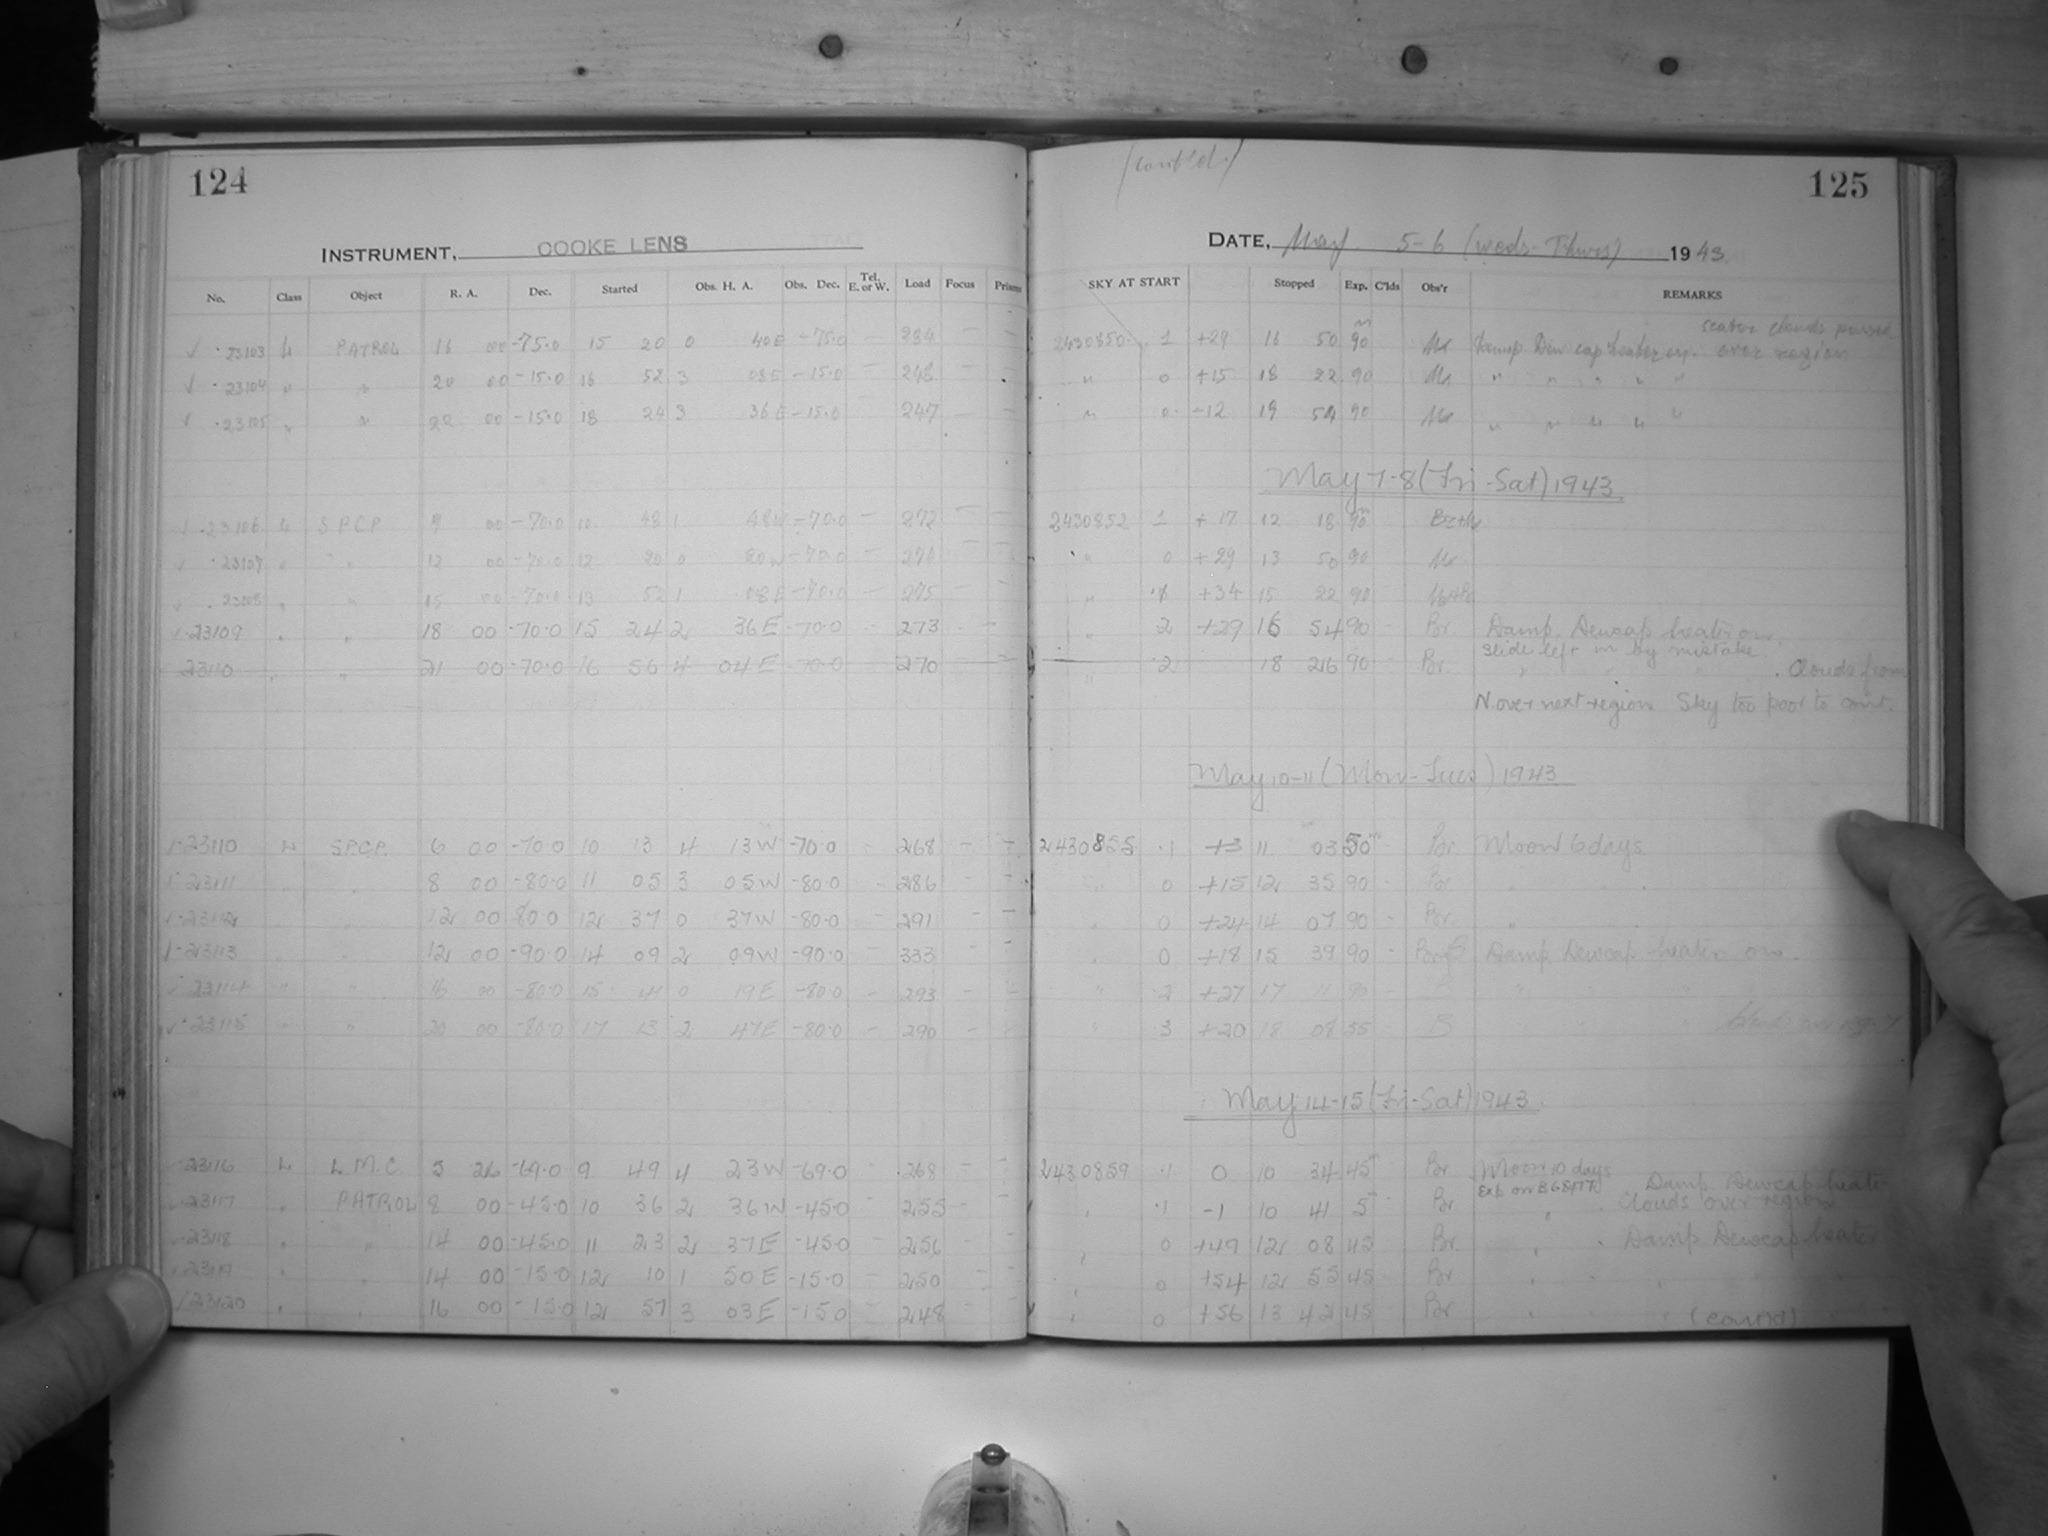 124
INSTRUMENT, COOKE LENS
No. Class Object R. A. Dec. Started Obs. H. A. Obs. Dec. Tel. E. or W. Load Focus Prism
√ 23103 L PATROL 16 00 -75.0 15 20 0 40E -75.0 — 284 — —
√ 23104 " " 20 00 -15.0 16 52 3 08E -15.0 — 248 — —
√ 23105 " " 22 00 -15.0 18 24 3 36E -15.0 — 247 — —
√ 23106 L S.P.C.P. 9 00 -70.0 10 48 1 48W -70.0 — 272 — —
√ 23107 " " 12 00 -70.0 12 20 0 20W -70.0 — —
√ 23108 " " 15 00 -70.0 13 52 1 08E -70.0 — 275 — —
√ 23109 " " 18 00 -70.0 15 24 2 36E -70.0 — 273 — —
23110 " " 21 00 -70.0 16 56 4 04E -70.0 270
√ 23110 L S.P.C.P. 6 00 -70.0 10 13 4 13W -70.0 268 — —
√ 23111 " " 8 00 -80.0 11 05 3 05W -80.0 — 286 — —
√ 23112 " " 12 00 80.0 12 37 0 37W -80.0 — 291 — —
√ 23113 " " 12 00 -90.0 14 09 2 09W -90.0 — 333 — —
√ 23114 " " 16 00 -80.0 15 41 0 19E -80.0 — 293 — —
√ 23115 " " 20 00 -80.0 17 13 2 47E -80.0 — 290 — —
√ 23116 L L.M.C. 5 26 -69.0 9 49 4 23W -69.0 268 — —
√ 23117 " PATROL 8 00 -45.0 10 36 2 36W -45.0 — 255 — —
√ 23118 " " 14 00 -45.0 11 23 2 37E -45.0 — 256 — —
√ 23119 " " 14 00 -15.0 12 10 1 50E -15.0 — 250 — —
√ 23120 " " 16 00 -15.0 12 57 3 03E -15.0 — 248 — —
(cont'd.)
125
DATE, May 5-6 (Weds-Thurs) 1943
SKY AT START Stopped Exp. C'lds Obs'r REMARKS
2430850 1 +29 16 50 90m clouds passed
Damp Dew cap heater on. over region
" 0 +15 18 22 90 " " " " "
" 0 -12 19 54 90 " " " " "
May 7-8 (Fri-Sat) 1943
2430852 1 +17 12 18 90m
" 0 +29 13 50 90
" 1 +34 15 22 90
" 2 +29 16 54 90 Br Damp. Dewcap heater on.
slide left in by mistake.
" 2 18 26 90 Br " " . Clouds from
N. over next region Sky too poor to cont.
May 10-11 (Mon-Tues) 1943
2430855 1 +3 11 03 50m Br Moon 6 days
" 0 +15 12 35 90 - Br " "
" 0 +24 14 07 90 - Br "
" 0 +18 15 39 90 - Damp Dewcap heater on.
" 2 +27 17 11 90 - B " " "
" 3 +20 18 08 55 B " "
May 14-15 (Fri-Sat) 1943
2430859 1 0 10 34 45m Br Moon 10 days Damp Dewcap heater
" 1 -1 10 41 5 Br " . Clouds over region
" 0 +49 12 08 45 Br " . Damp Dewcap heater
" 0 +54 12 55 45 Br " " "
" 0 +56 13 42 45 Br " "
(contd)